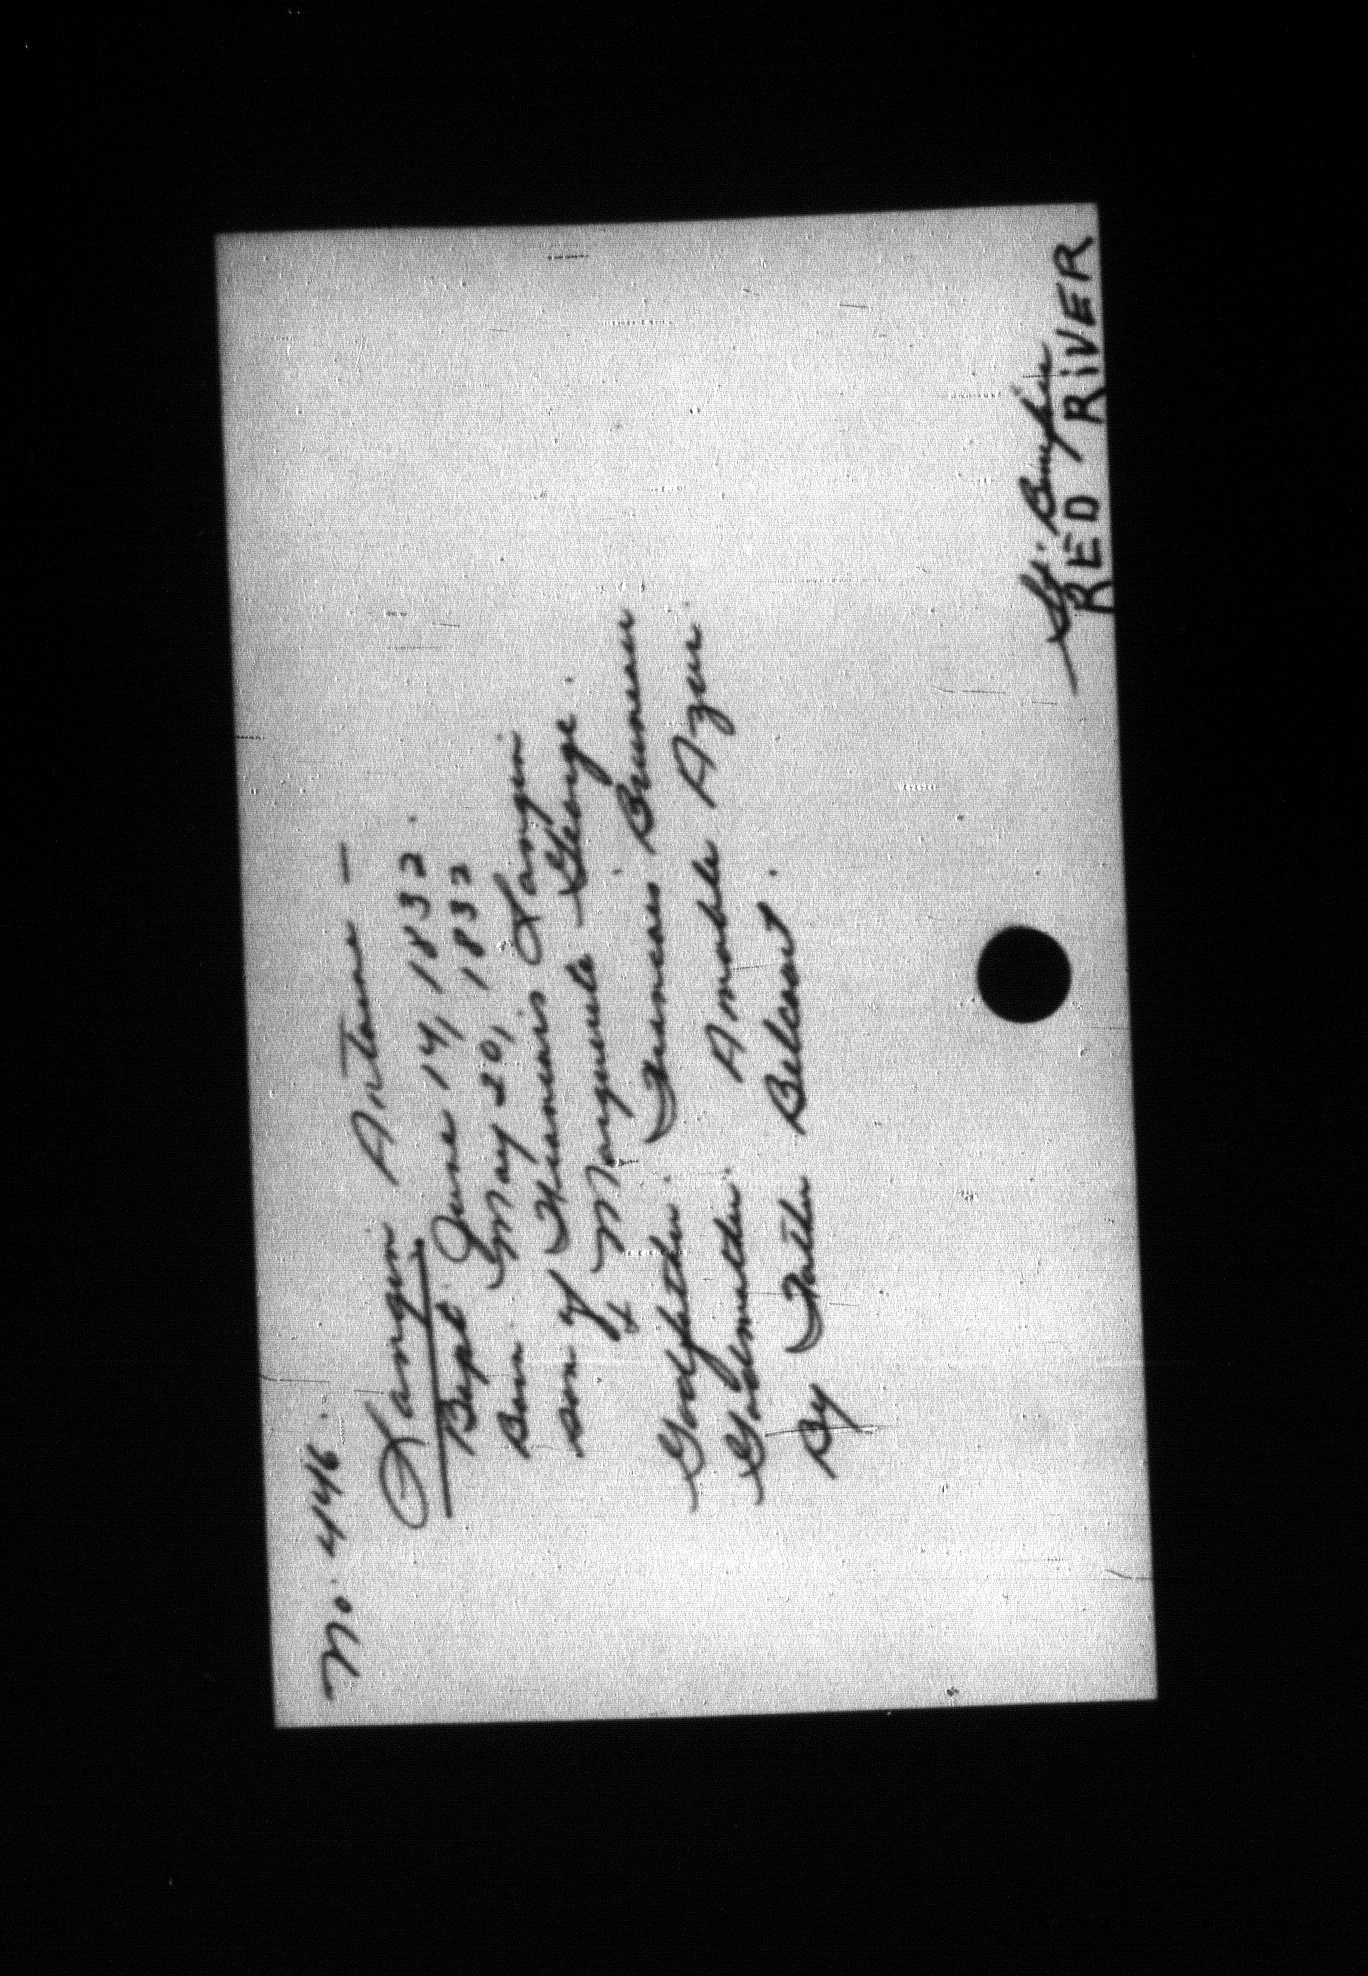 No. 446.
Langin Antoine —
Bapt. June 14, 1832.
Born May 20, 1832
Son of Francois Langin
& Marguerite George.
Godfather: Francois Bruneau
Godmother: Amable Azur.
By Father Belcourt.
St.
RED RiVER